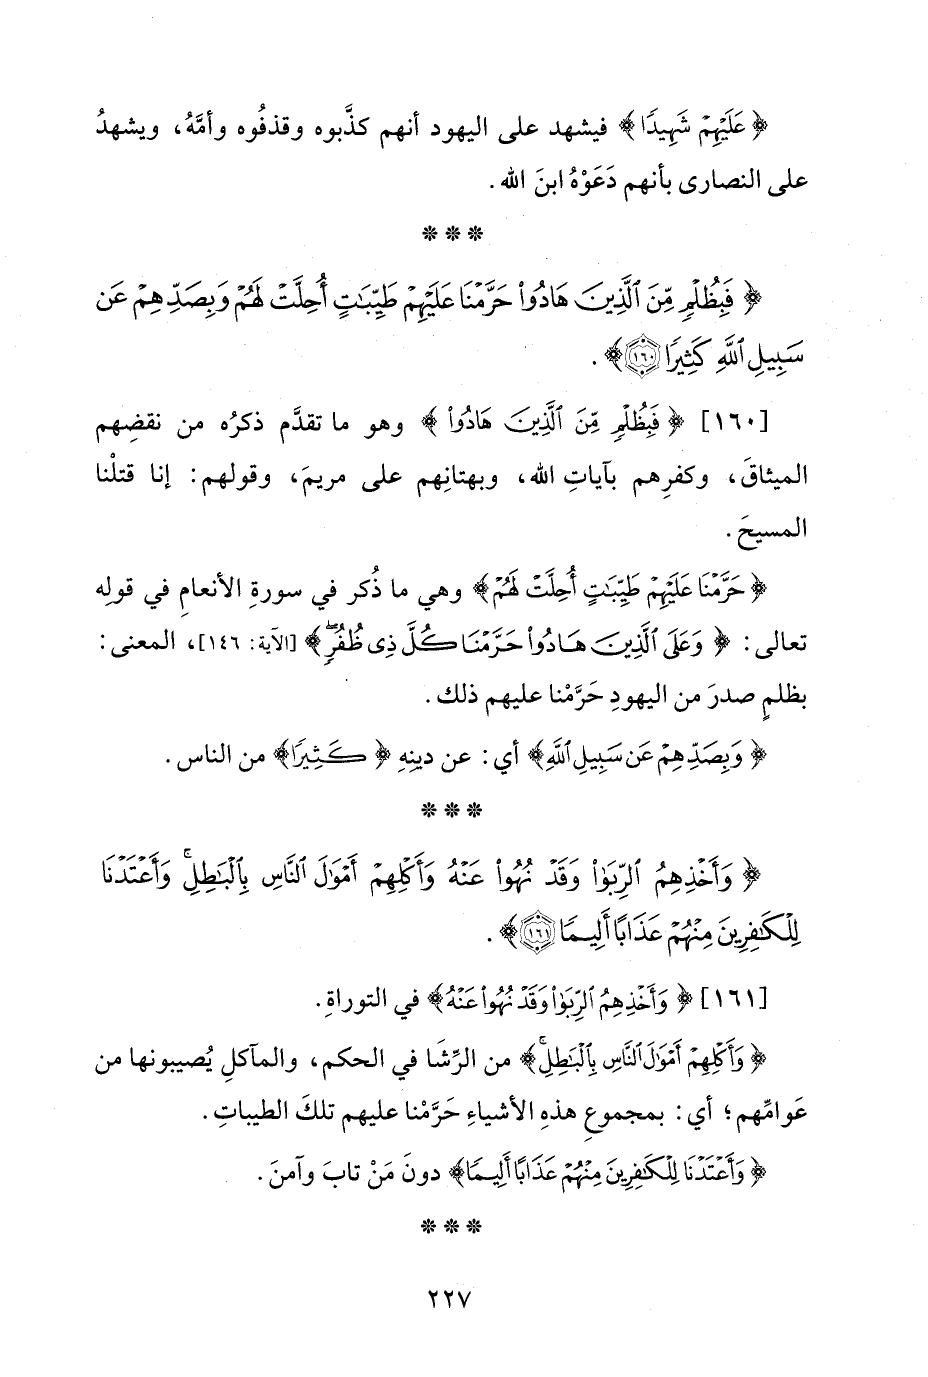 ﴿عَلَيْهِمْ شَهِيدًا﴾ فيشهد على اليهود أنهم كذَّبوه وقذفُوه وأمَّهُ، ويشهدُ
على النصارى بأنهم دَعَوْهُ ابنَ الله.
* * *
﴿فَبِظُلْمٍ مِّنَ ٱلَّذِينَ هَادُوا۟ حَرَّمْنَا عَلَيْهِمْ طَيِّبَٰتٍ أُحِلَّتْ لَهُمْ وَبِصَدِّهِمْ عَن
سَبِيلِ ٱللَّهِ كَثِيرًا ١٦٠﴾.
[١٦٠] ﴿فَبِظُلْمٍ مِّنَ ٱلَّذِينَ هَادُوا۟﴾ وهو ما تقدَّم ذكرُه من نقضِهم
الميثاقَ، وكفرِهم بآياتِ الله، وبهتانِهم على مريمَ، وقولهم: إنا قتلْنا
المسيحَ.
﴿حَرَّمْنَا عَلَيْهِمْ طَيِّبَٰتٍ أُحِلَّتْ لَهُمْ﴾ وهي ما ذُكر في سورةِ الأنعامِ في قولِه
تعالى: ﴿وَعَلَى ٱلَّذِينَ هَادُوا۟ حَرَّمْنَا كُلَّ ذِى ظُفُرٍۖ﴾ [الآية: ١٤٦]، المعنى:
بظلمٍ صدرَ من اليهودِ حَرَّمْنا عليهم ذلك.
﴿وَبِصَدِّهِمْ عَن سَبِيلِ ٱللَّهِ﴾ أي: عن دينِهِ ﴿كَثِيرًا﴾ من الناس.
* * *
﴿وَأَخْذِهِمُ ٱلرِّبَوٰا۟ وَقَدْ نُهُوا۟ عَنْهُ وَأَكْلِهِمْ أَمْوَٰلَ ٱلنَّاسِ بِٱلْبَٰطِلِۚ وَأَعْتَدْنَا
لِلْكَٰفِرِينَ مِنْهُمْ عَذَابًا أَلِيمًا ١٦١﴾.
[١٦١] ﴿وَأَخْذِهِمُ ٱلرِّبَوٰا۟ وَقَدْ نُهُوا۟ عَنْهُ﴾ في التوراةِ.
﴿وَأَكْلِهِمْ أَمْوَٰلَ ٱلنَّاسِ بِٱلْبَٰطِلِۚ﴾ من الرِّشَا في الحكم، والمآكلِ يُصيبونها من
عَوامِّهم؛ أي: بمجموعِ هذهِ الأشياءِ حَرَّمْنا عليهم تلكَ الطيباتِ.
﴿وَأَعْتَدْنَا لِلْكَٰفِرِينَ مِنْهُمْ عَذَابًا أَلِيمًا﴾ دونَ مَنْ تابَ وآمنَ.
* * *
٢٢٧